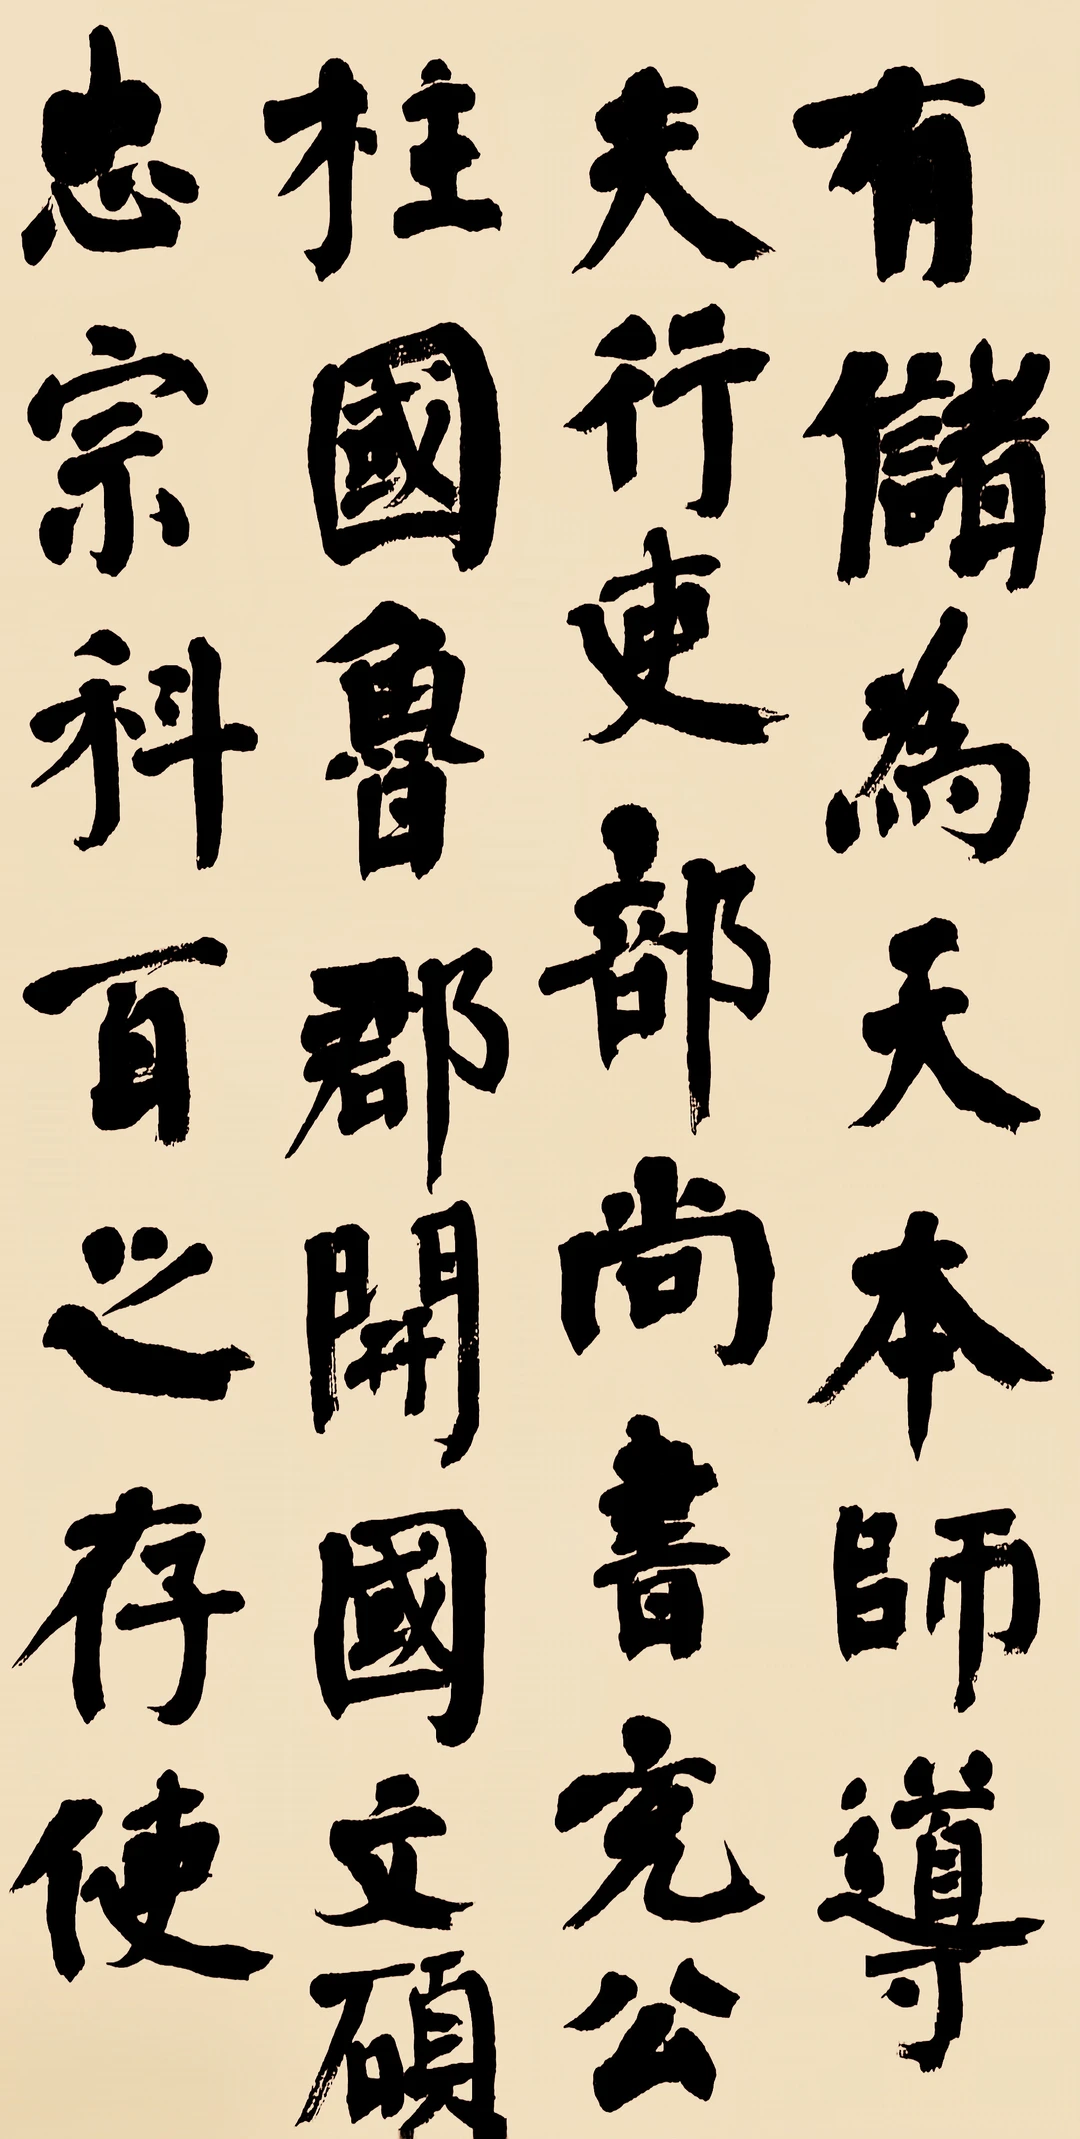 有儲為天本師導
夫行吏部尚書充公
柱國魯郡開國立碩
忠宗科百之存使